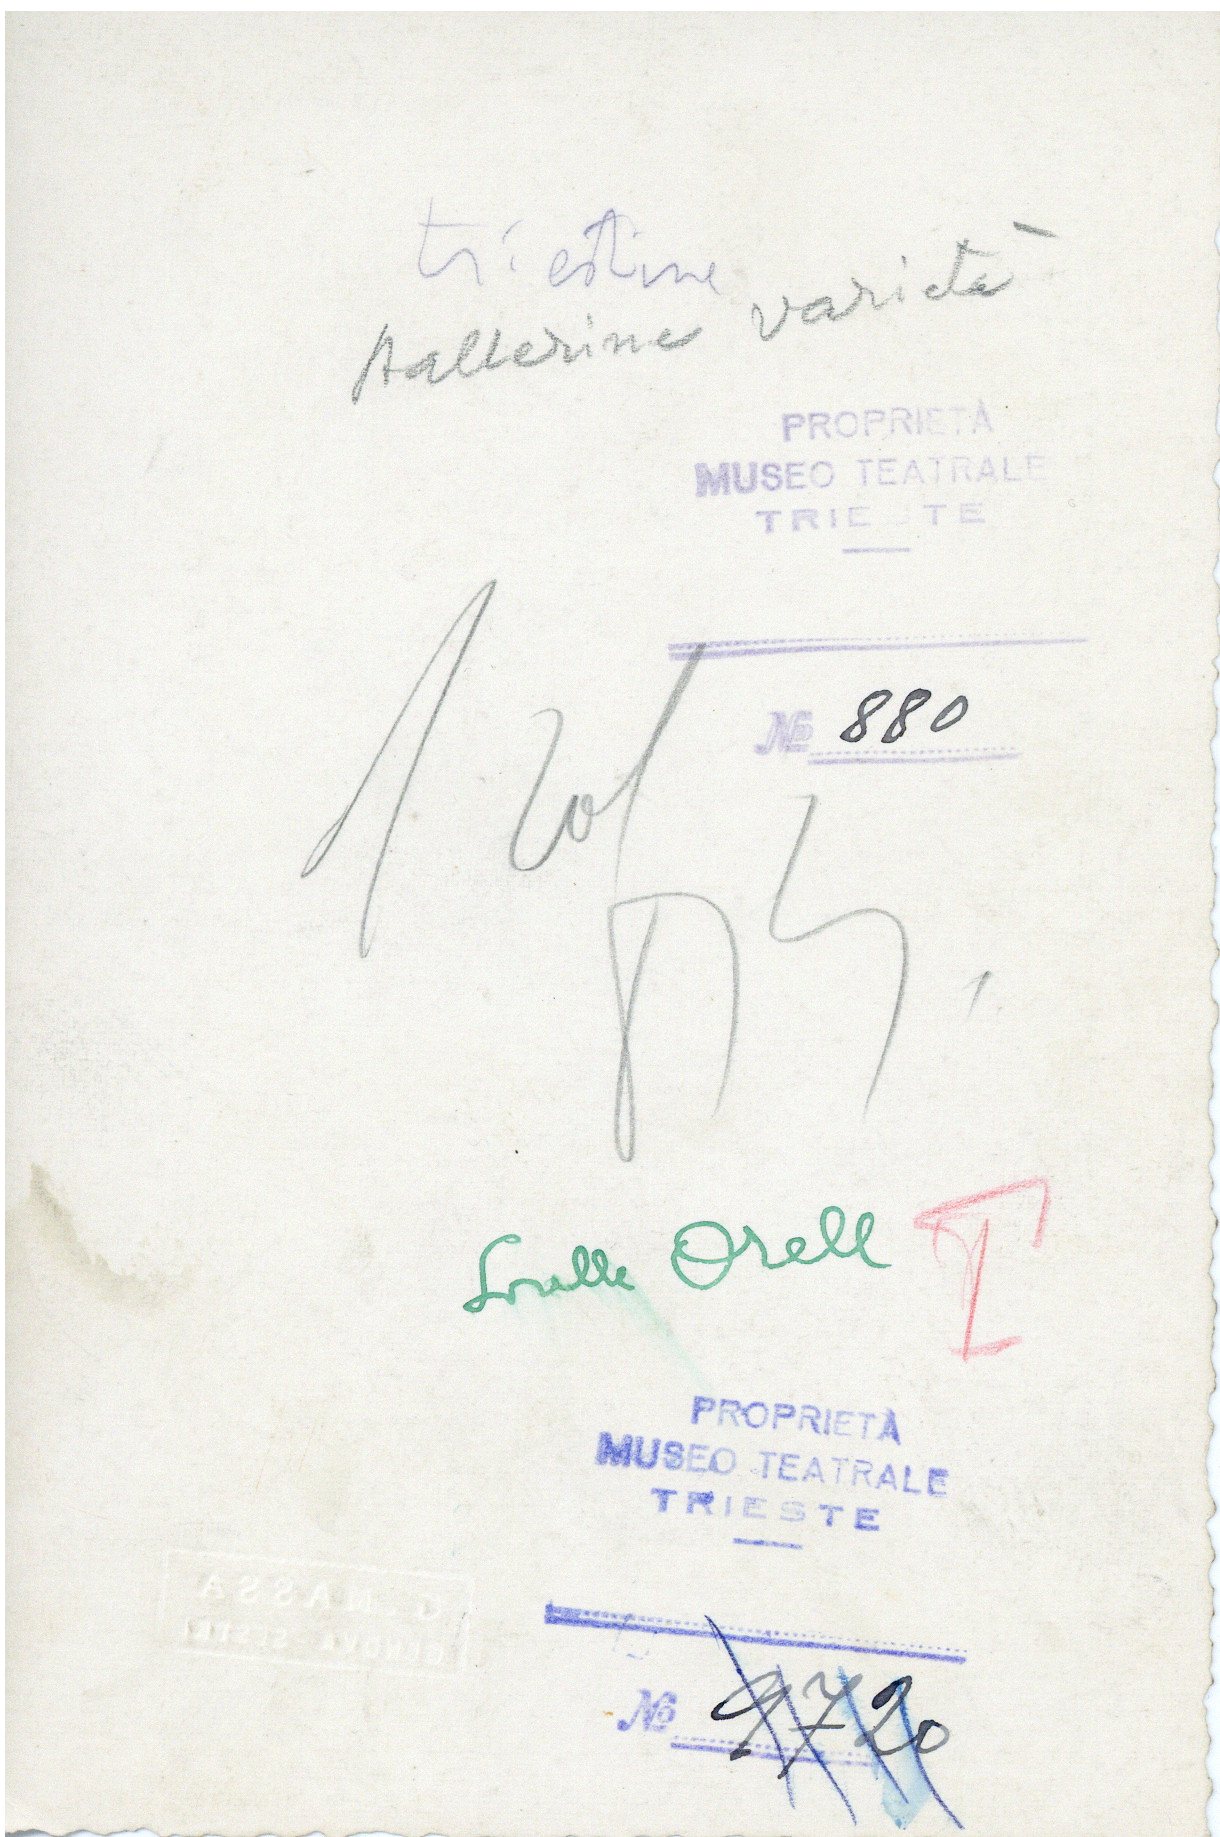 triestine
ballerine varietà
PROPRIETÀ
MUSEO TEATRALE
TRIESTE
№ 880
Sorelle Orell I
PROPRIETÀ
MUSEO TEATRALE
TRIESTE
№ 9720
G. NASSA